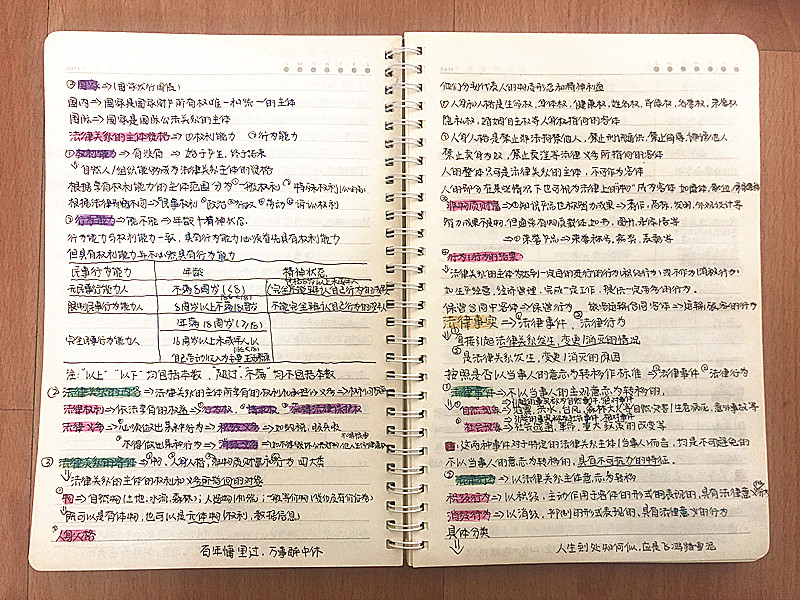 ③国家⇒(国家发行国债)
国内⇒国家是国家财产所有权唯一和统一的主体
国际⇒国家是国际公法关系的主体
法律关系的主体资格⇒①权利能力 ②行为能力
①权利能力⇒有没有 ⇒始于出生,终于死亡
⇒自然人/组织能够成为法律关系主体的资格
根据享有权利能力的主体范围分为①一般权利②特殊权利
根据法律部门不同⇒①民事权利②政治③行政④劳动⑤诉讼权利
②行为能力⇒能不能⇒年龄+精神状态.
行为能力与权利能力一致,具有行为能力必须首先具有权利能力
但具有权利能力并不必然具有行为能力
民事行为能力 年龄 精神状态
无民事行为能力人 不满8周岁(<8) 完全不能辨认自己行为的
限制民事行为能力人 8周岁以上不满18周岁 不能完全辨认自己行为的
年满18周岁(≥18)
完全民事行为能力人 16周岁以上未成年人以
自己劳动收入为主要生活来源
注:"以上""以下"均包括本数,"超过""不满"均不包括本数
②法律关系的内容⇒法律关系主体所享有的权利和承担的义务
法律权利⇒依法享有的权益⇒
法律义务⇒①必须做出某种行为⇒积极义务⇒如纳税,服兵役
②不得做出某种行为⇒消极义务⇒
③法律关系的客体⇒①物,②人身人格③非物质财富④行为 四大类
⇒法律关系主体的权利和义务所指向的对象
①物⇒自然物(土地,水流,森林);人造物
⇒既可以是有体物,也可以是无体物(权利,数据信息)
②人身人格
百年慵里过,万事醉中休
他们分别代表人的物质形态和精神利益
①人身和人格是生命权,身体权,健康权,姓名权,肖像权,名誉权,荣誉权
隐私权,婚姻自主权等人身权指向的客体
②人身人格是禁止非法拘禁他人,禁止刑讯逼供,禁止侮辱,诽谤他人
禁止卖身为奴,禁止卖淫等法律义务所指向的客体
人的整体只可是法律关系的主体,不可作为客体
人的部分在某些情况下也可视为法律上的"物"成为客体
③非物质财富⇒①知识产品也称智力成果⇒著作,商标,发明,外观设计等
智力成果不是物,但通常有物质载体,如书,图册,录像带等
⇒②荣誉产品⇒荣誉称号,奖章,奖励等
④行为(行为的结果)
⇒法律关系的主体为达到一定目的进行的行为(积极行为)或不作为(消极行为)
如生产经营,经济管理,完成一定工作,提供一定劳务的行为.
保管合同中客体⇒保管行为
法律事实⇒①法律事件,②法律行为
①直接引起法律关系发生,变更/消灭的情况
②是法律关系发生,变更/消灭的原因
按照是否以当事人的意志为转移作标准⇒①法律事件②法律行为
①法律事件⇒不以当事人的主观意志为转移的,
①自然现象⇒
②社会现象⇒
注:这两种事件对于特定的法律关系主体(当事人)而言,均是不可避免的
不以当事人的意志为转移的,具有不可抗力的特征.
②法律行为⇒以法律关系主体意志为转移
积极行为⇒以积极,主动作用于客体的形式的表现的,具有法律意义
消极行为⇒以消极,抑制的形式表现的,具有法律意义的行为
具体分类
人生到处知何似,应是飞鸿踏雪泥